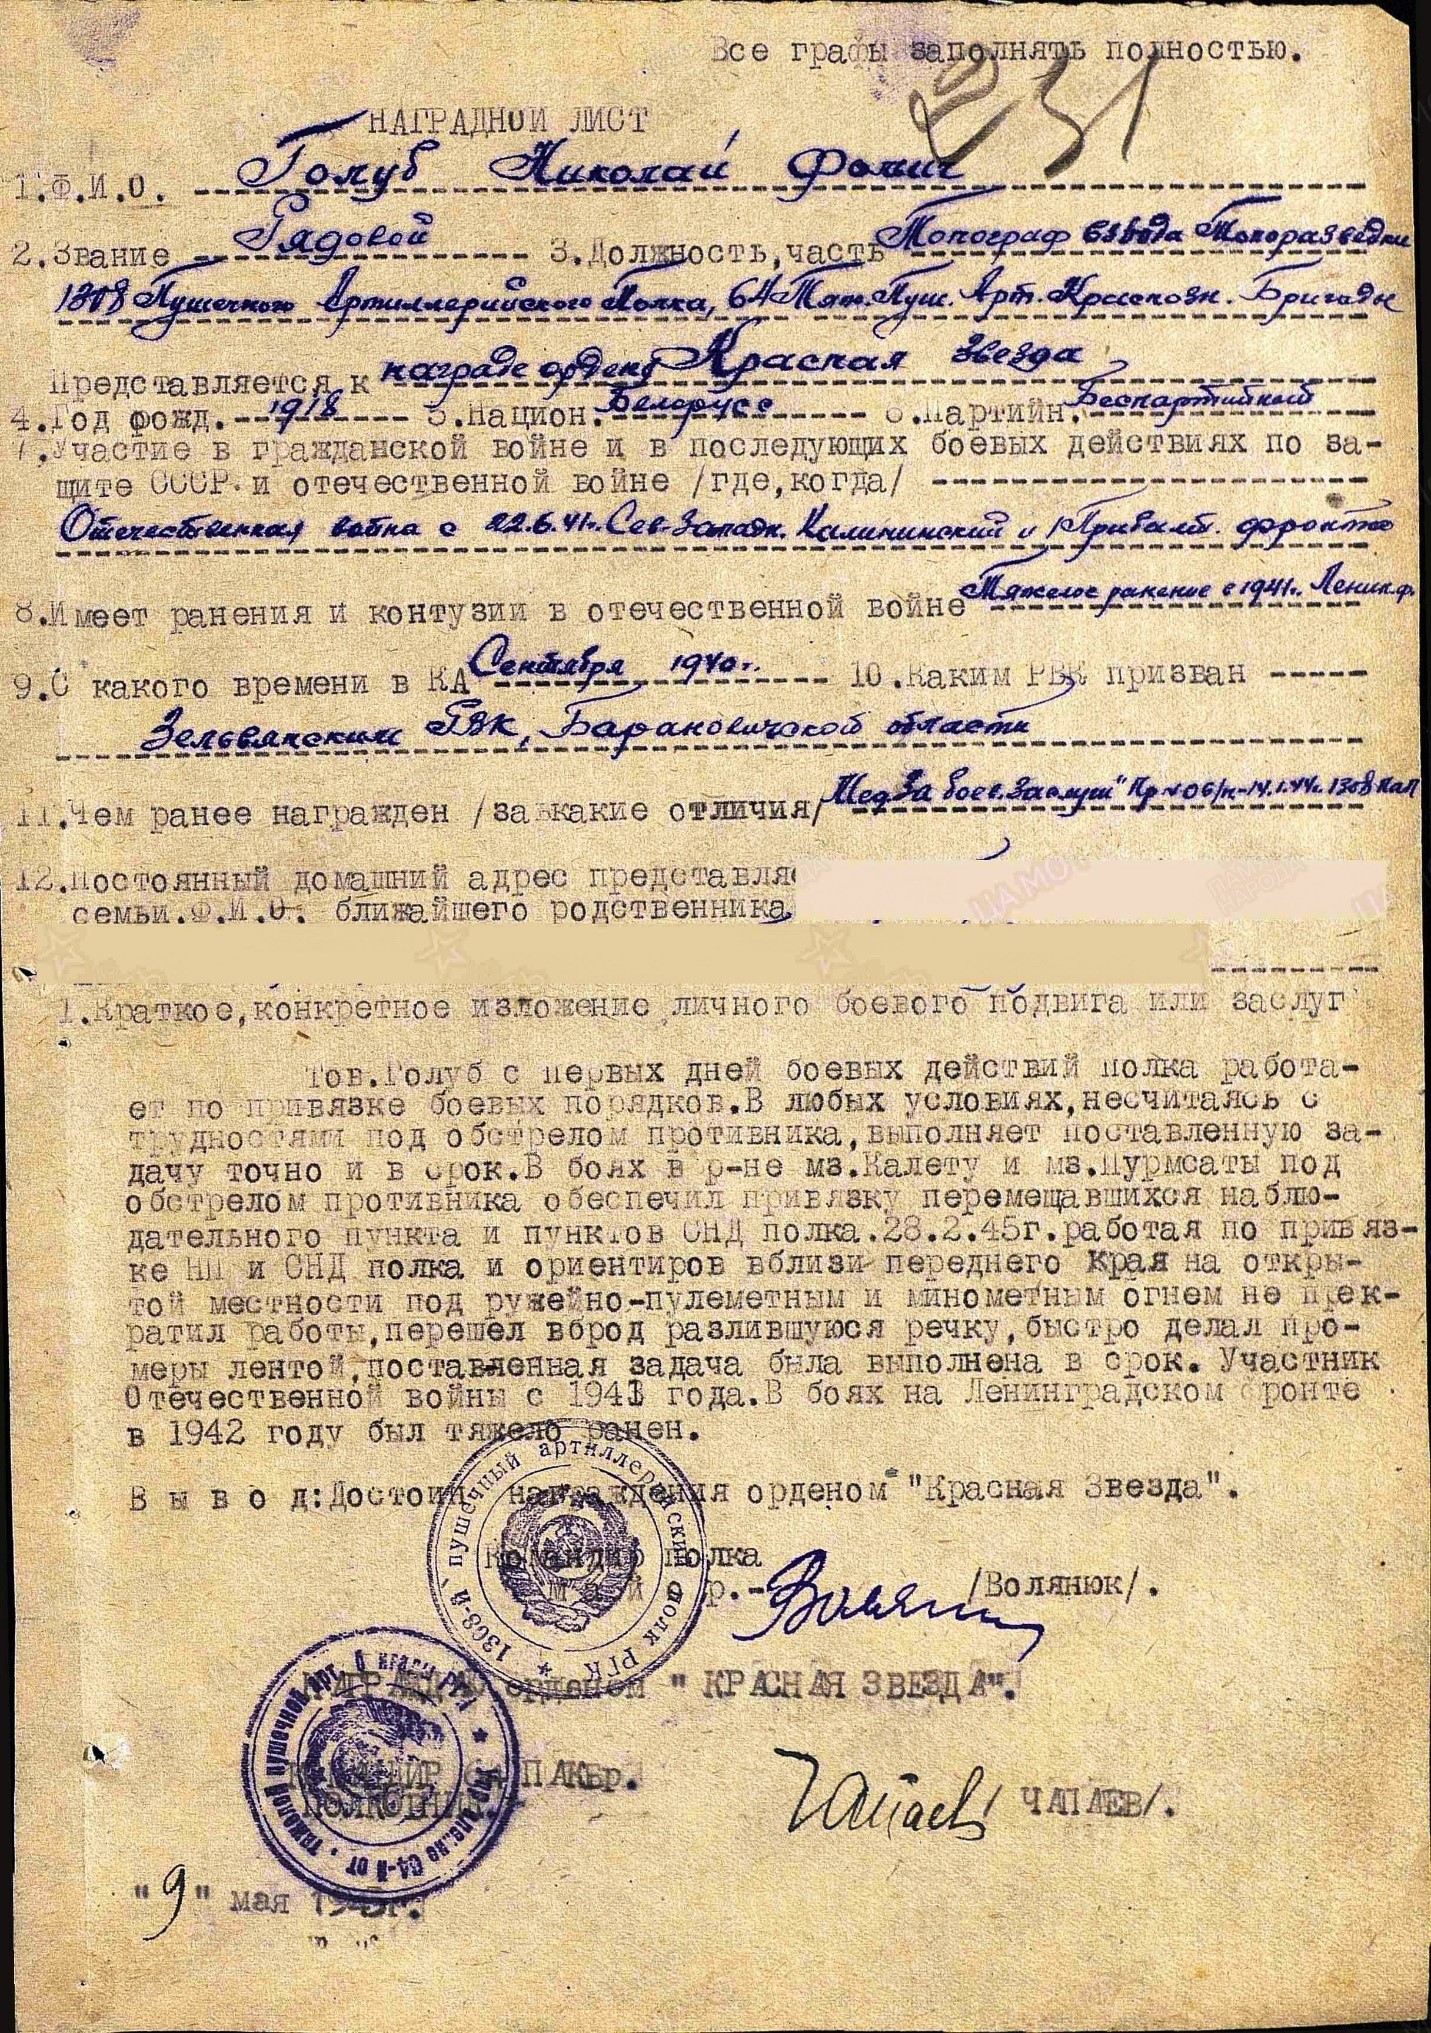 Все графы заполнять полностью.
231
НАГРАДНОЙ ЛИСТ
1.Ф.И.О. Голуб Николай Фомич
2.Звание Рядовой 3.Должность,часть Топограф взвода Топоразведки
1308 Пушечного Артиллерийского Полка, 64 Тяж. Пуш. Арт. Краснозн. Бригады
Представляется к награде ордену Красная Звезда
4.Год рожд. 1918 5.Национ. Белорусс 6.Партийн. Беспартийный
7.Участие в гражданской войне и в последующих боевых действиях по за-
щите СССР и отечественной войне /где,когда/
Отечественная война с 22.6.41г. Сев-Западн. Калининский и 1 Прибалт. фронте
8.Имеет ранения и контузии в отечественной войне Тяжелое ранение с 1941г. Ленин.ф.
9.С какого времени в КА Сентября 1940г. 10.Каким РВК призван
Зельвянским РВК, Барановичской области
11.Чем ранее награжден /за какие отличия/ Мед "За боев. Заслуги" Пр. № 06/н-14.1.44г. 1308 ПАП
12.Постоянный домашний адрес представля
семьи.Ф.И.О. ближайшего родственника
1.Краткое,конкретное изложение личного боевого подвига или заслуг
Тов.Голуб с первых дней боевых действий полка работа-
ет по привязке боевых порядков.В любых условиях,несчитаясь с
трудностями под обстрелом противника,выполняет поставленную за-
дачу точно и в срок.В боях в р-не мз.Калету и мз.Пурмсаты под
обстрелом противника обеспечил привязку перемещавшихся наблю-
дательного пункта и пунктов СНД полка.28.2.45г.работая по привяз-
ке НП и СНД полка и ориентиров вблизи переднего края на откры-
той местности под ружейно-пулеметным и минометным огнем не прек-
ратил работы,перешел вброд разлившуюся речку,быстро делал про-
меры лентой,поставленная задача была выполнена в срок. Участник
Отечественной войны с 1941 года.В боях на Ленинградском фронте
в 1942 году был тяжело ранен.
В ы в о д:Достоин награждения орденом "Красная Звезда".
1308-й пушечный артиллерийский полк РГК
Командир полка
м а й о р.- /Волянюк/.
НАГРАЖДАЮ орденом " КРАСНАЯ ЗВЕЗДА".
КОМАНДИР 64 ТПАКБр.
ПОЛКОВНИК
Чапаев / ЧАПАЕВ/.
"9" мая 1945г.